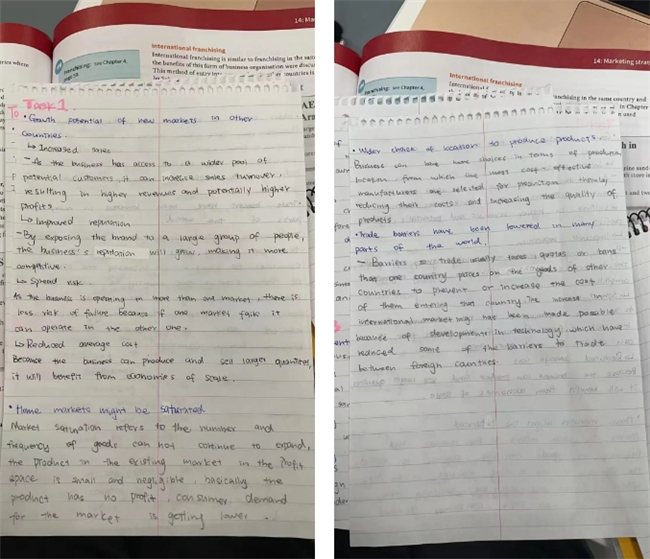 14: Ma
tries where
Franchising: see Chapter 4,
International franchising
International franchising is similar to franchising in the sam
the benefits of this form of business organisation were discu
This method of
countries is
Task 1
• Growth potential of new markets in other
countries.
↳ Increased sales
- As the business has access to a wider pool of
potential customers, it can increase sales turnover.
resulting in higher revenues and potentially higher
profits.
↳ Improved reputation
- By exposing the brand to a large group of people,
the business's reputation will grow, making it more
competitive.
↳ Spread risk.
As the business is operating in more than one market, there is
less risk of failure because if one market fails it
can operate in the other one.
↳ Reduced average cost
Because the business can produce and sell larger quantities,
it will benefit from economies of scale.
• Home markets might be saturated
Market saturation refers to the number and
frequency of goods can not continue to expand,
the product in the existing market in the profit
space is small and negligible, basically the
product has no profit, consumer demand
for the market is getting lower.
14: Marketing strat
Franchising: see Chapter 4,
International franchising
International
franchising in the same country and
in Chapter
n used
• Wider choice of location to produce products.
Business can have more choices in terms of production
location from which the most cost effective
manufacturers are selected for production thereby
reducing their costs and increasing the quality of
products
• Trade barriers have been lowered in many
parts of the world.
- Barriers to trade usually taxes, quotas or bans
that one country places on the goods of other
countries to prevent or increase the cost
of them entering that country. The increase in
international marketing has been made possible
because of developments in technology which have
reduced some of the barriers to trade
between foreign countries.